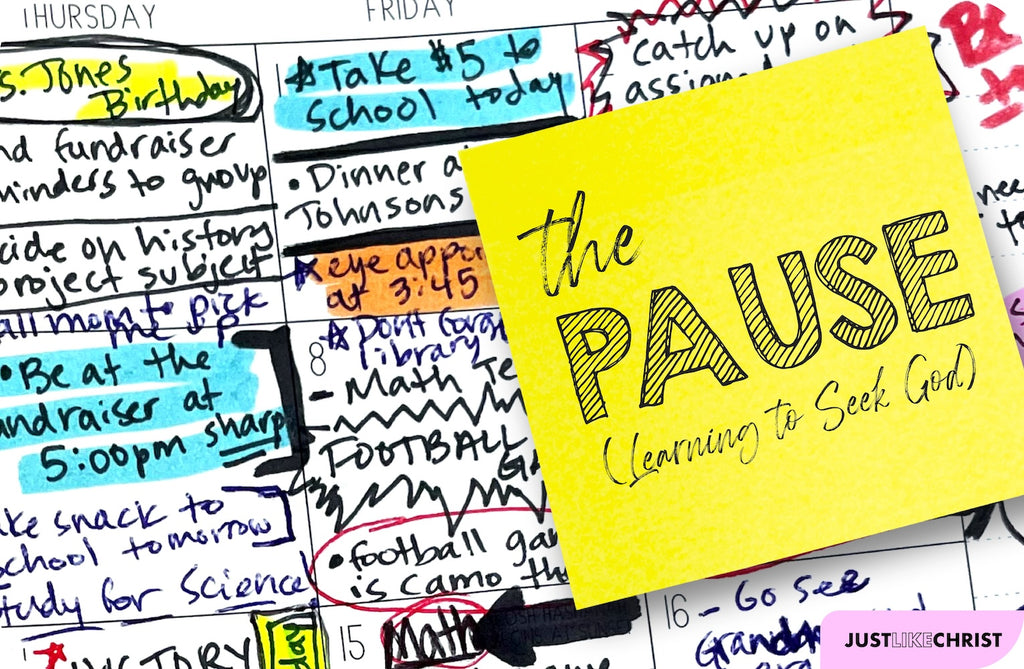 THURSDAY
s. Jones
Birthday
nd fundraiser
minders to group
cide on history
project subject
all mom to pick
me up
• Be at the
undraiser at
5:00pm sharp
ake snack to
school tomorrow
tudy for Science
VICTORY
FRIDAY
Take $5 to
school today
• Dinner a
Johnsons
eye appoi
at 3:45
8
Don't forget
library
- Math Te
FOOTBALL
GA
• football gam
is camo th
15
Math
catch up on
assign
Be
nee
to
16
- Go see
Grandm
the
PAUSE
(Learning to Seek God)
JUSTLIKECHRIST